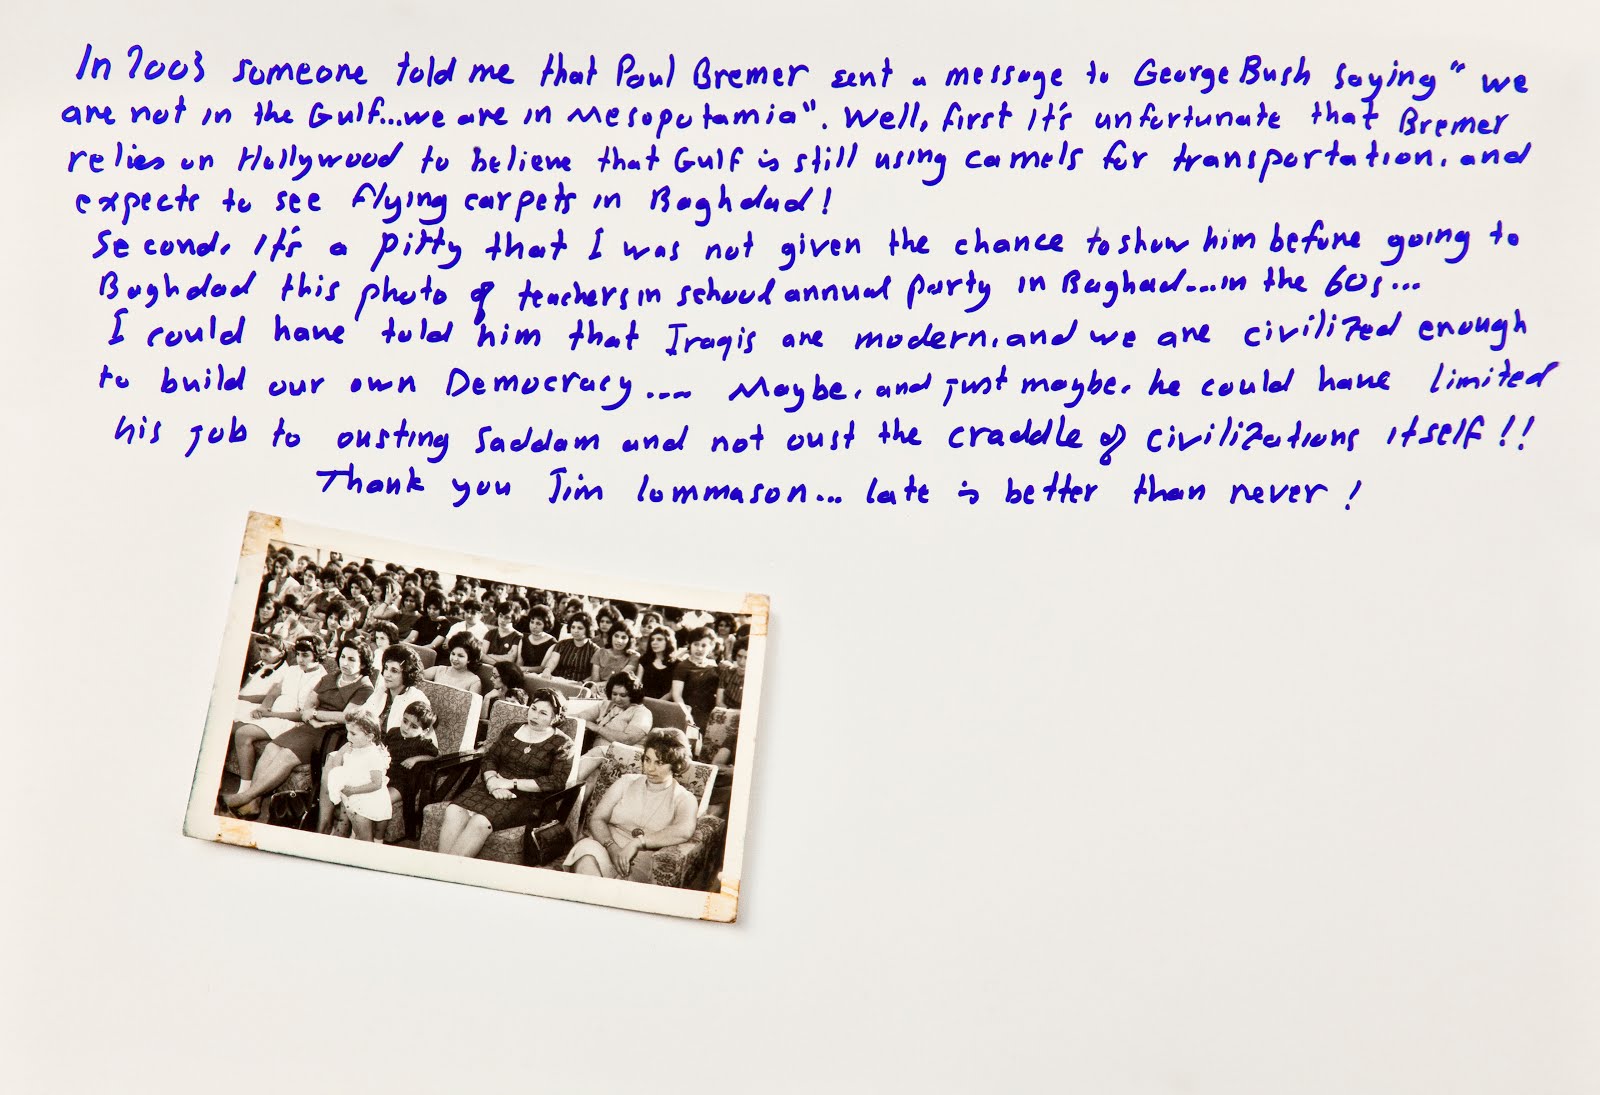 In 2003 someone told me that Paul Bremer sent a message to George Bush saying "we
are not in the Gulf...we are in Mesopotamia". Well, first it's unfortunate that Bremer
relies on Hollywood to believe that Gulf is still using camels for transportation, and
expects to see flying carpets in Baghdad!
Second, it's a pitty that I was not given the chance to show him before going to
Baghdad this photo of teachers in school annual party in Baghdad....in the 60s...
I could have told him that Iraqis are modern, and we are civilized enough
to build our own Democracy.... Maybe, and just maybe, he could have limited
his job to ousting Saddam and not oust the craddle of civilizations itself!!
Thank you Jim Lommason... late is better than never!